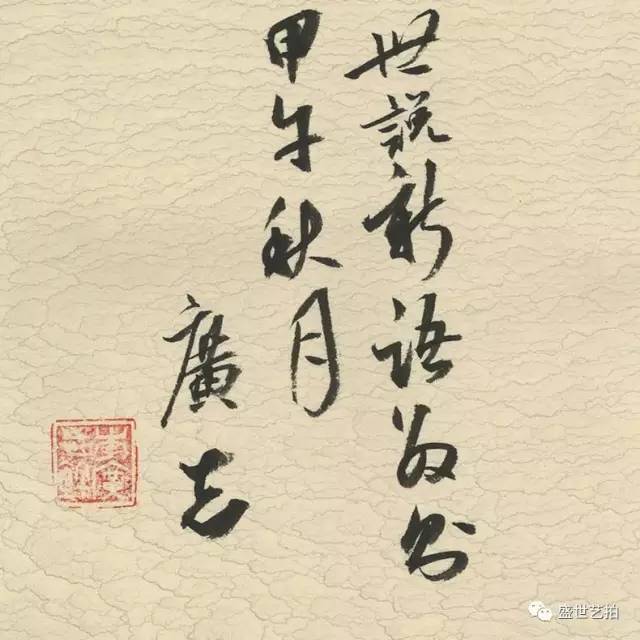 世說新語數則
甲午秋月
廣志
盛世艺拍